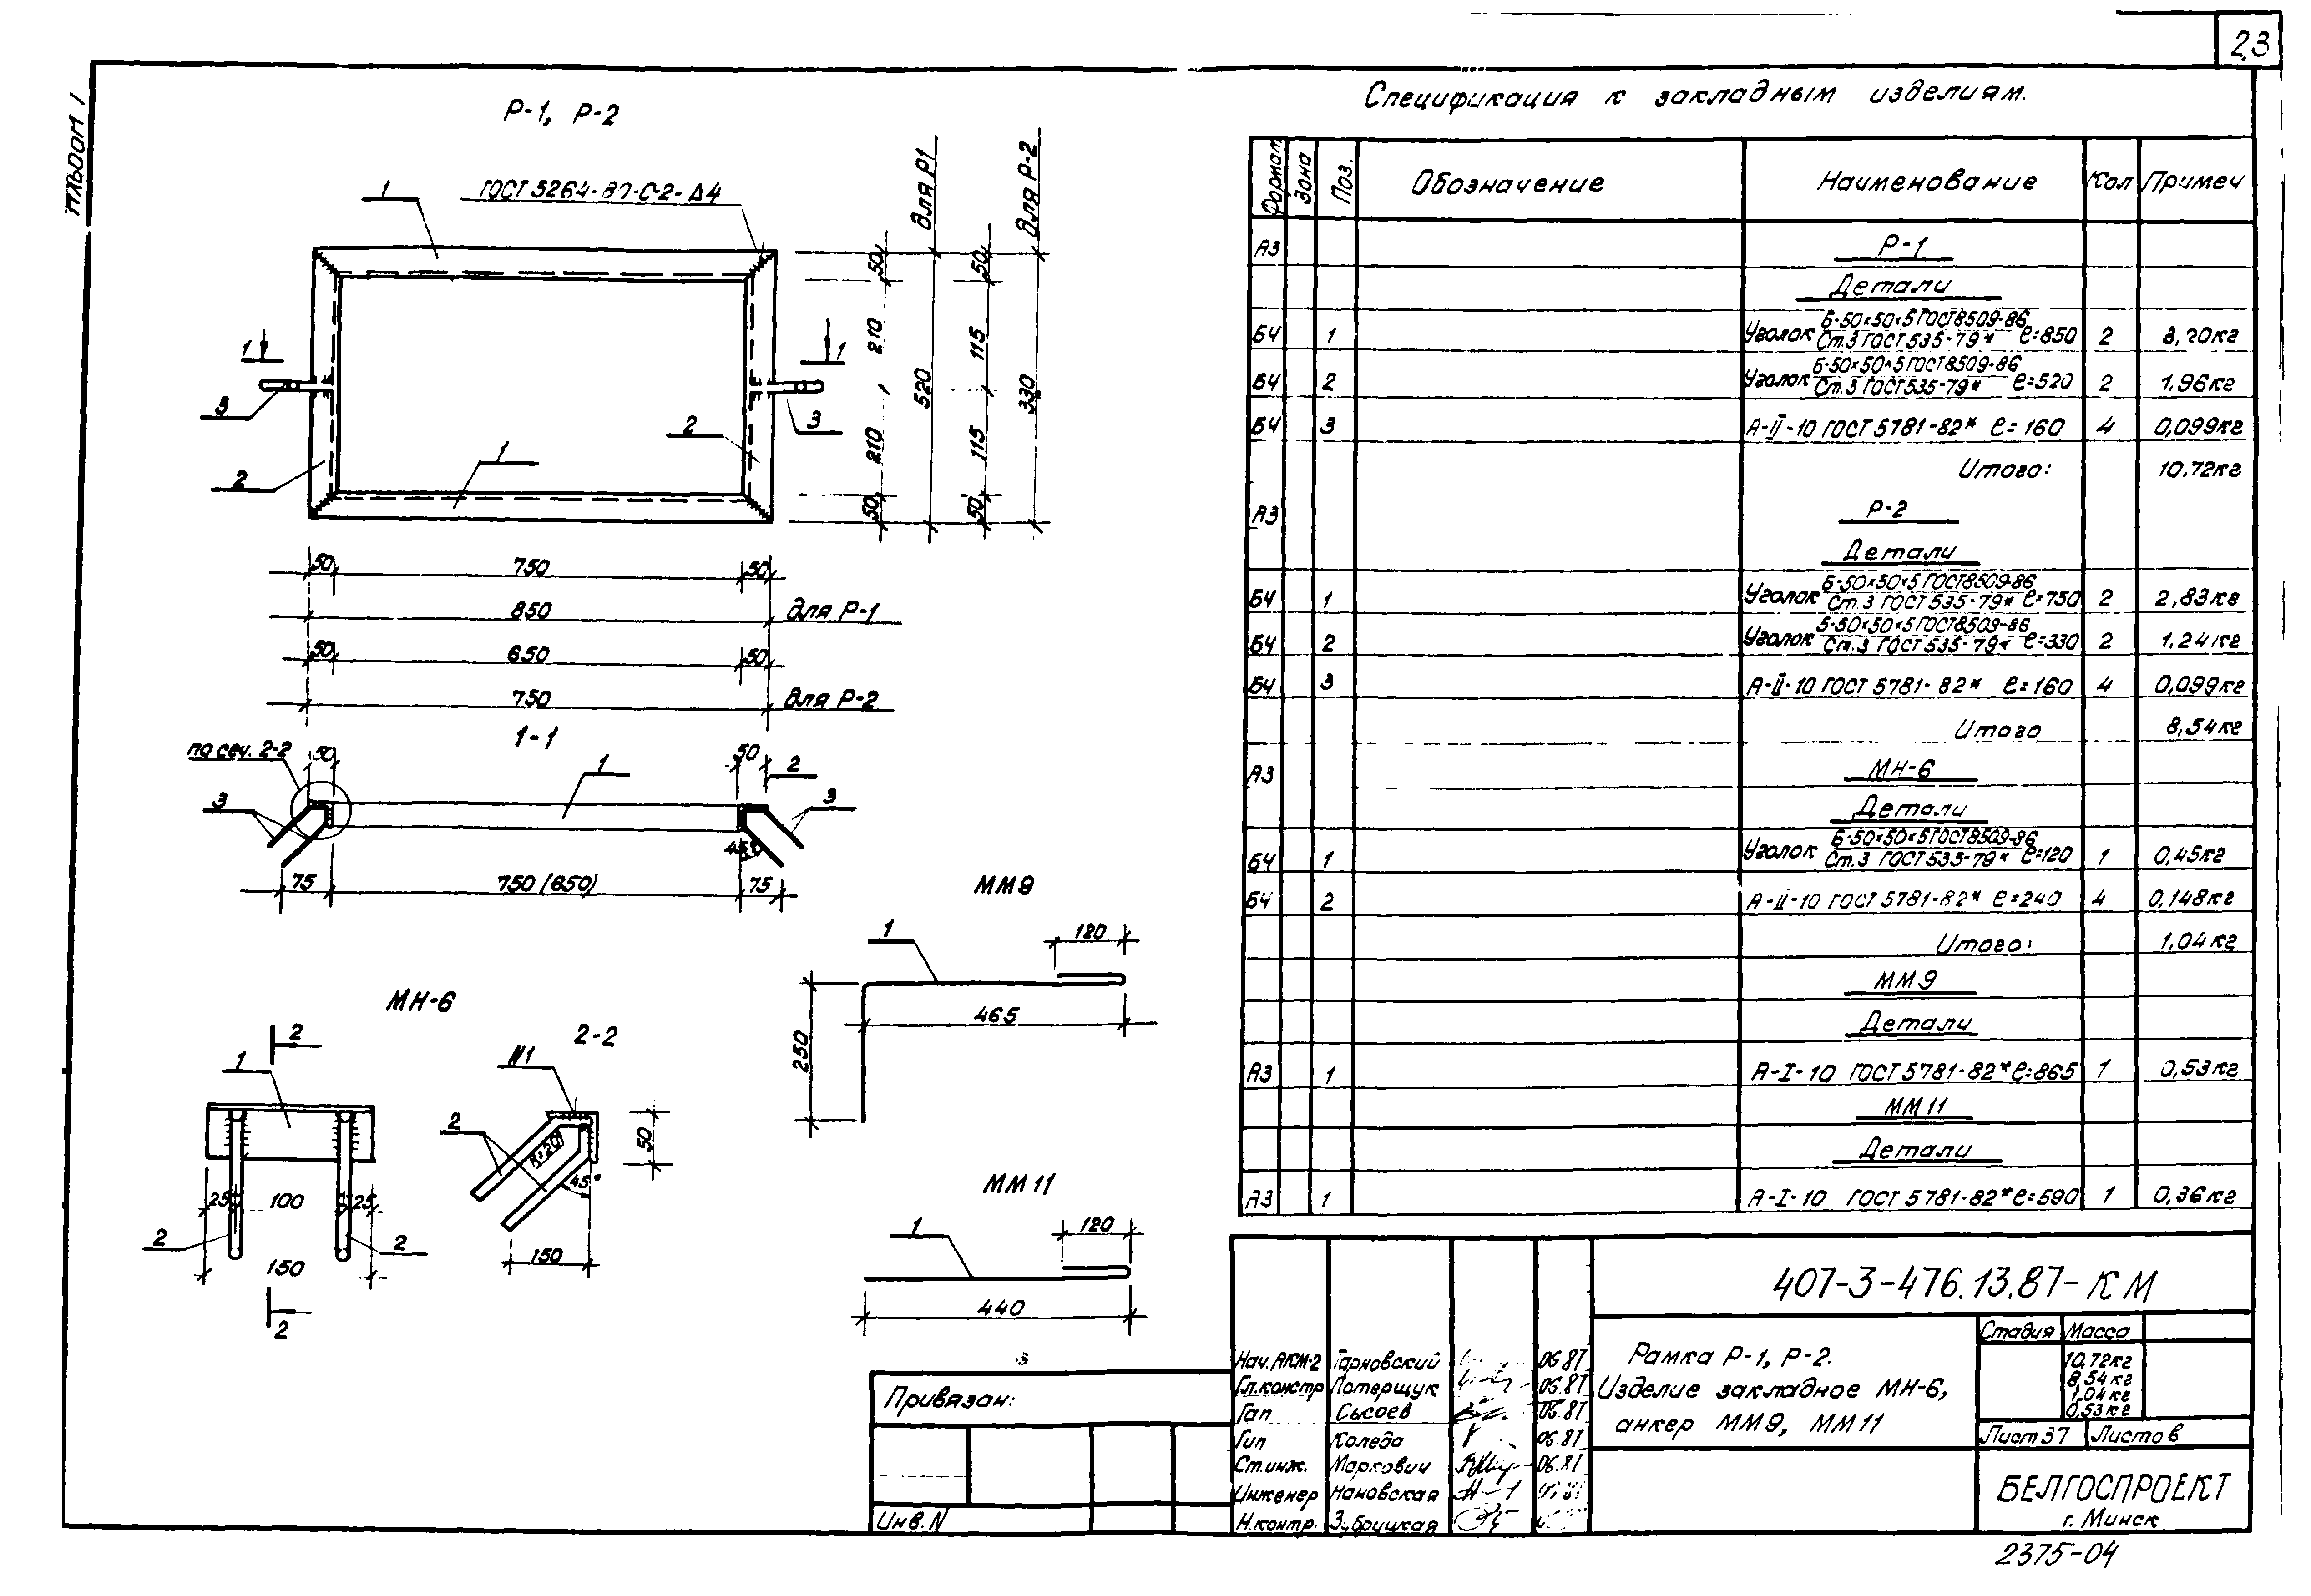 23
Альбом 1
Р-1, Р-2
ГОСТ 5264-80-С-2-Δ4
1
для Р1
для Р-2
50
50
210
520
115
330
210
115
50
50
1
1
3
3
2
2
1
50
750
50
850
для Р-1
50
650
50
750
для Р-2
1-1
по сеч. 2-2
50
50
1
2
3
3
45°
75
750 (650)
75
ММ9
1
120
465
250
МН-6
2
1
25
100
25
2
2
150
2
2-2
N1
2
R=20
45°
50
150
ММ 11
1
120
440
Спецификация к закладным изделиям.
Формат
Зона
Поз.
Обозначение
Наименование
Кол
Примеч
А3 Р-1
Детали
БЧ 1 Уголок Б-50×50×5 ГОСТ8509-86 Ст.3 ГОСТ 535-79* ℓ=850 2 3,20кг
БЧ 2 Уголок Б-50×50×5 ГОСТ8509-86 Ст.3 ГОСТ535-79* ℓ=520 2 1,96кг
БЧ 3 А-II-10 ГОСТ 5781-82* ℓ=160 4 0,099кг
Итого: 10,72кг
А3 Р-2
Детали
БЧ 1 Уголок Б-50×50×5 ГОСТ8509-86 Ст.3 ГОСТ 535-79* ℓ=750 2 2,83кг
БЧ 2 Уголок Б-50×50×5 ГОСТ8509-86 Ст.3 ГОСТ535-79* ℓ=330 2 1,24кг
БЧ 3 А-II-10 ГОСТ 5781-82* ℓ=160 4 0,099кг
Итого 8,54кг
А3 МН-6
Детали
БЧ 1 Уголок Б-50×50×5 ГОСТ8509-86 Ст.3 ГОСТ535-79* ℓ=120 1 0,45кг
БЧ 2 А-II-10 ГОСТ 5781-82* ℓ=240 4 0,148кг
Итого: 1,04кг
ММ9
Детали
А3 1 А-I-10 ГОСТ 5781-82* ℓ=865 1 0,53кг
ММ11
Детали
А3 1 А-I-10 ГОСТ 5781-82* ℓ=590 1 0,36кг
407-3-476.13.87-КМ
Нач. АКМ-2 Тарновский 06.87
Гл.констр Потерщук 06.87
Гап Сысоев 06.87
Гип Коледа 06.87
Ст.инж. Маркович 06.87
Инженер Нановская
Н.контр. Зубрицкая
Рамка Р-1, Р-2.
Изделие закладное МН-6,
анкер ММ9, ММ11
Стадия
Масса
10,72кг
8,54кг
1,04кг
0,53кг
Лист 37
Листов
БЕЛГОСПРОЕКТ
г. Минск
Привязан:
Инв. N
2375-04